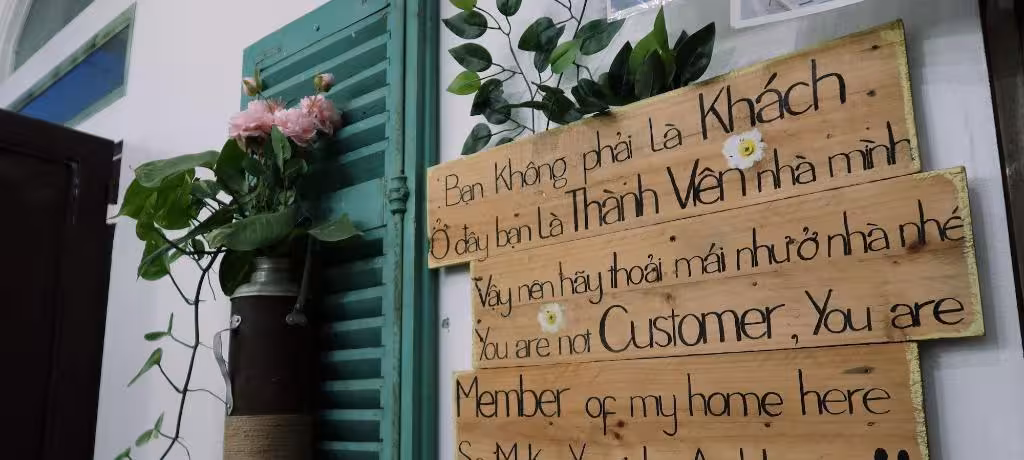 Bạn Không phải Là Khách
Ở đây bạn Là Thành Viên nhà mình
Vậy nên hãy thoải mái như ở nhà nhé
You are not Customer, You are
Member of my home here